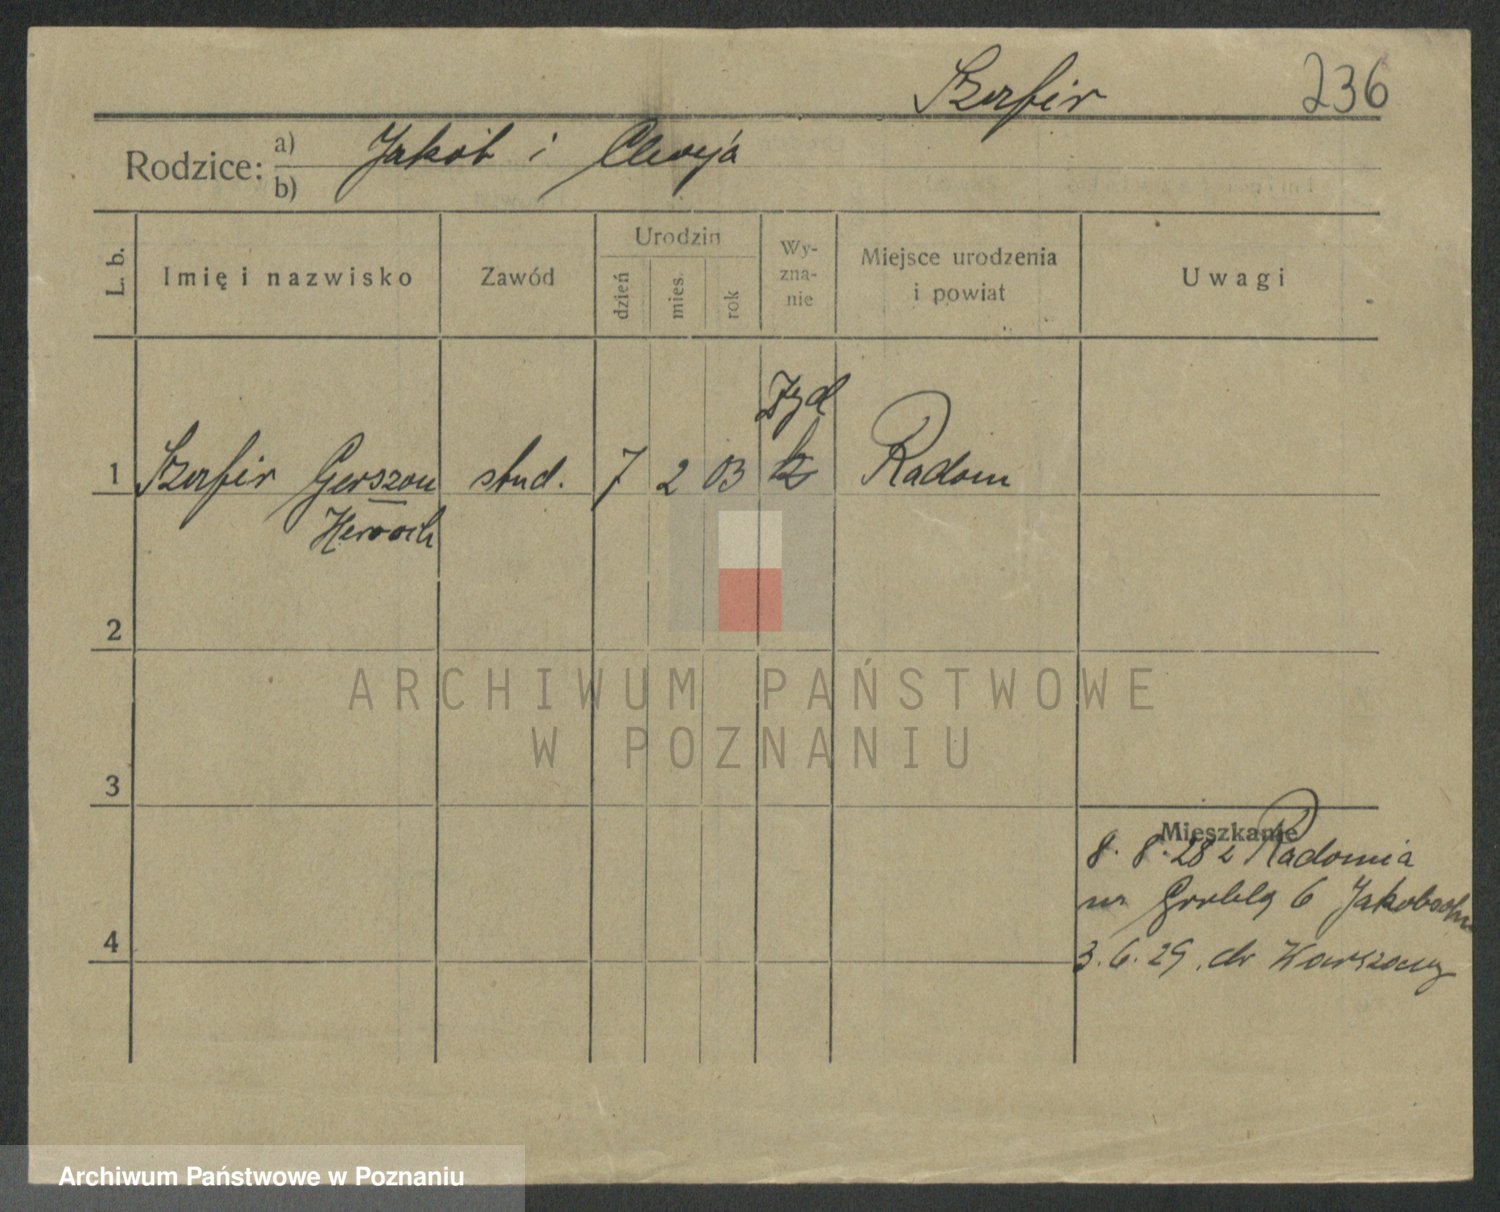 Szafir 236
Rodzice: a) Jakób i Chaja
b)
L. b. Imię i nazwisko Zawód Urodzin dzień mies. rok Wy-zna-nie Miejsce urodzenia i powiat Uwagi
żyd
1 Szafir Gerszon stud. 7 2 03 Radom
2
ARCHIWUM PAŃSTWOWE
W POZNANIU
3
Mieszkanie
8. 8. 28 z Radomia
na Grobla 6 Jakobsohn
4
3. 6. 29. do Warszawy
Archiwum Państwowe w Poznaniu